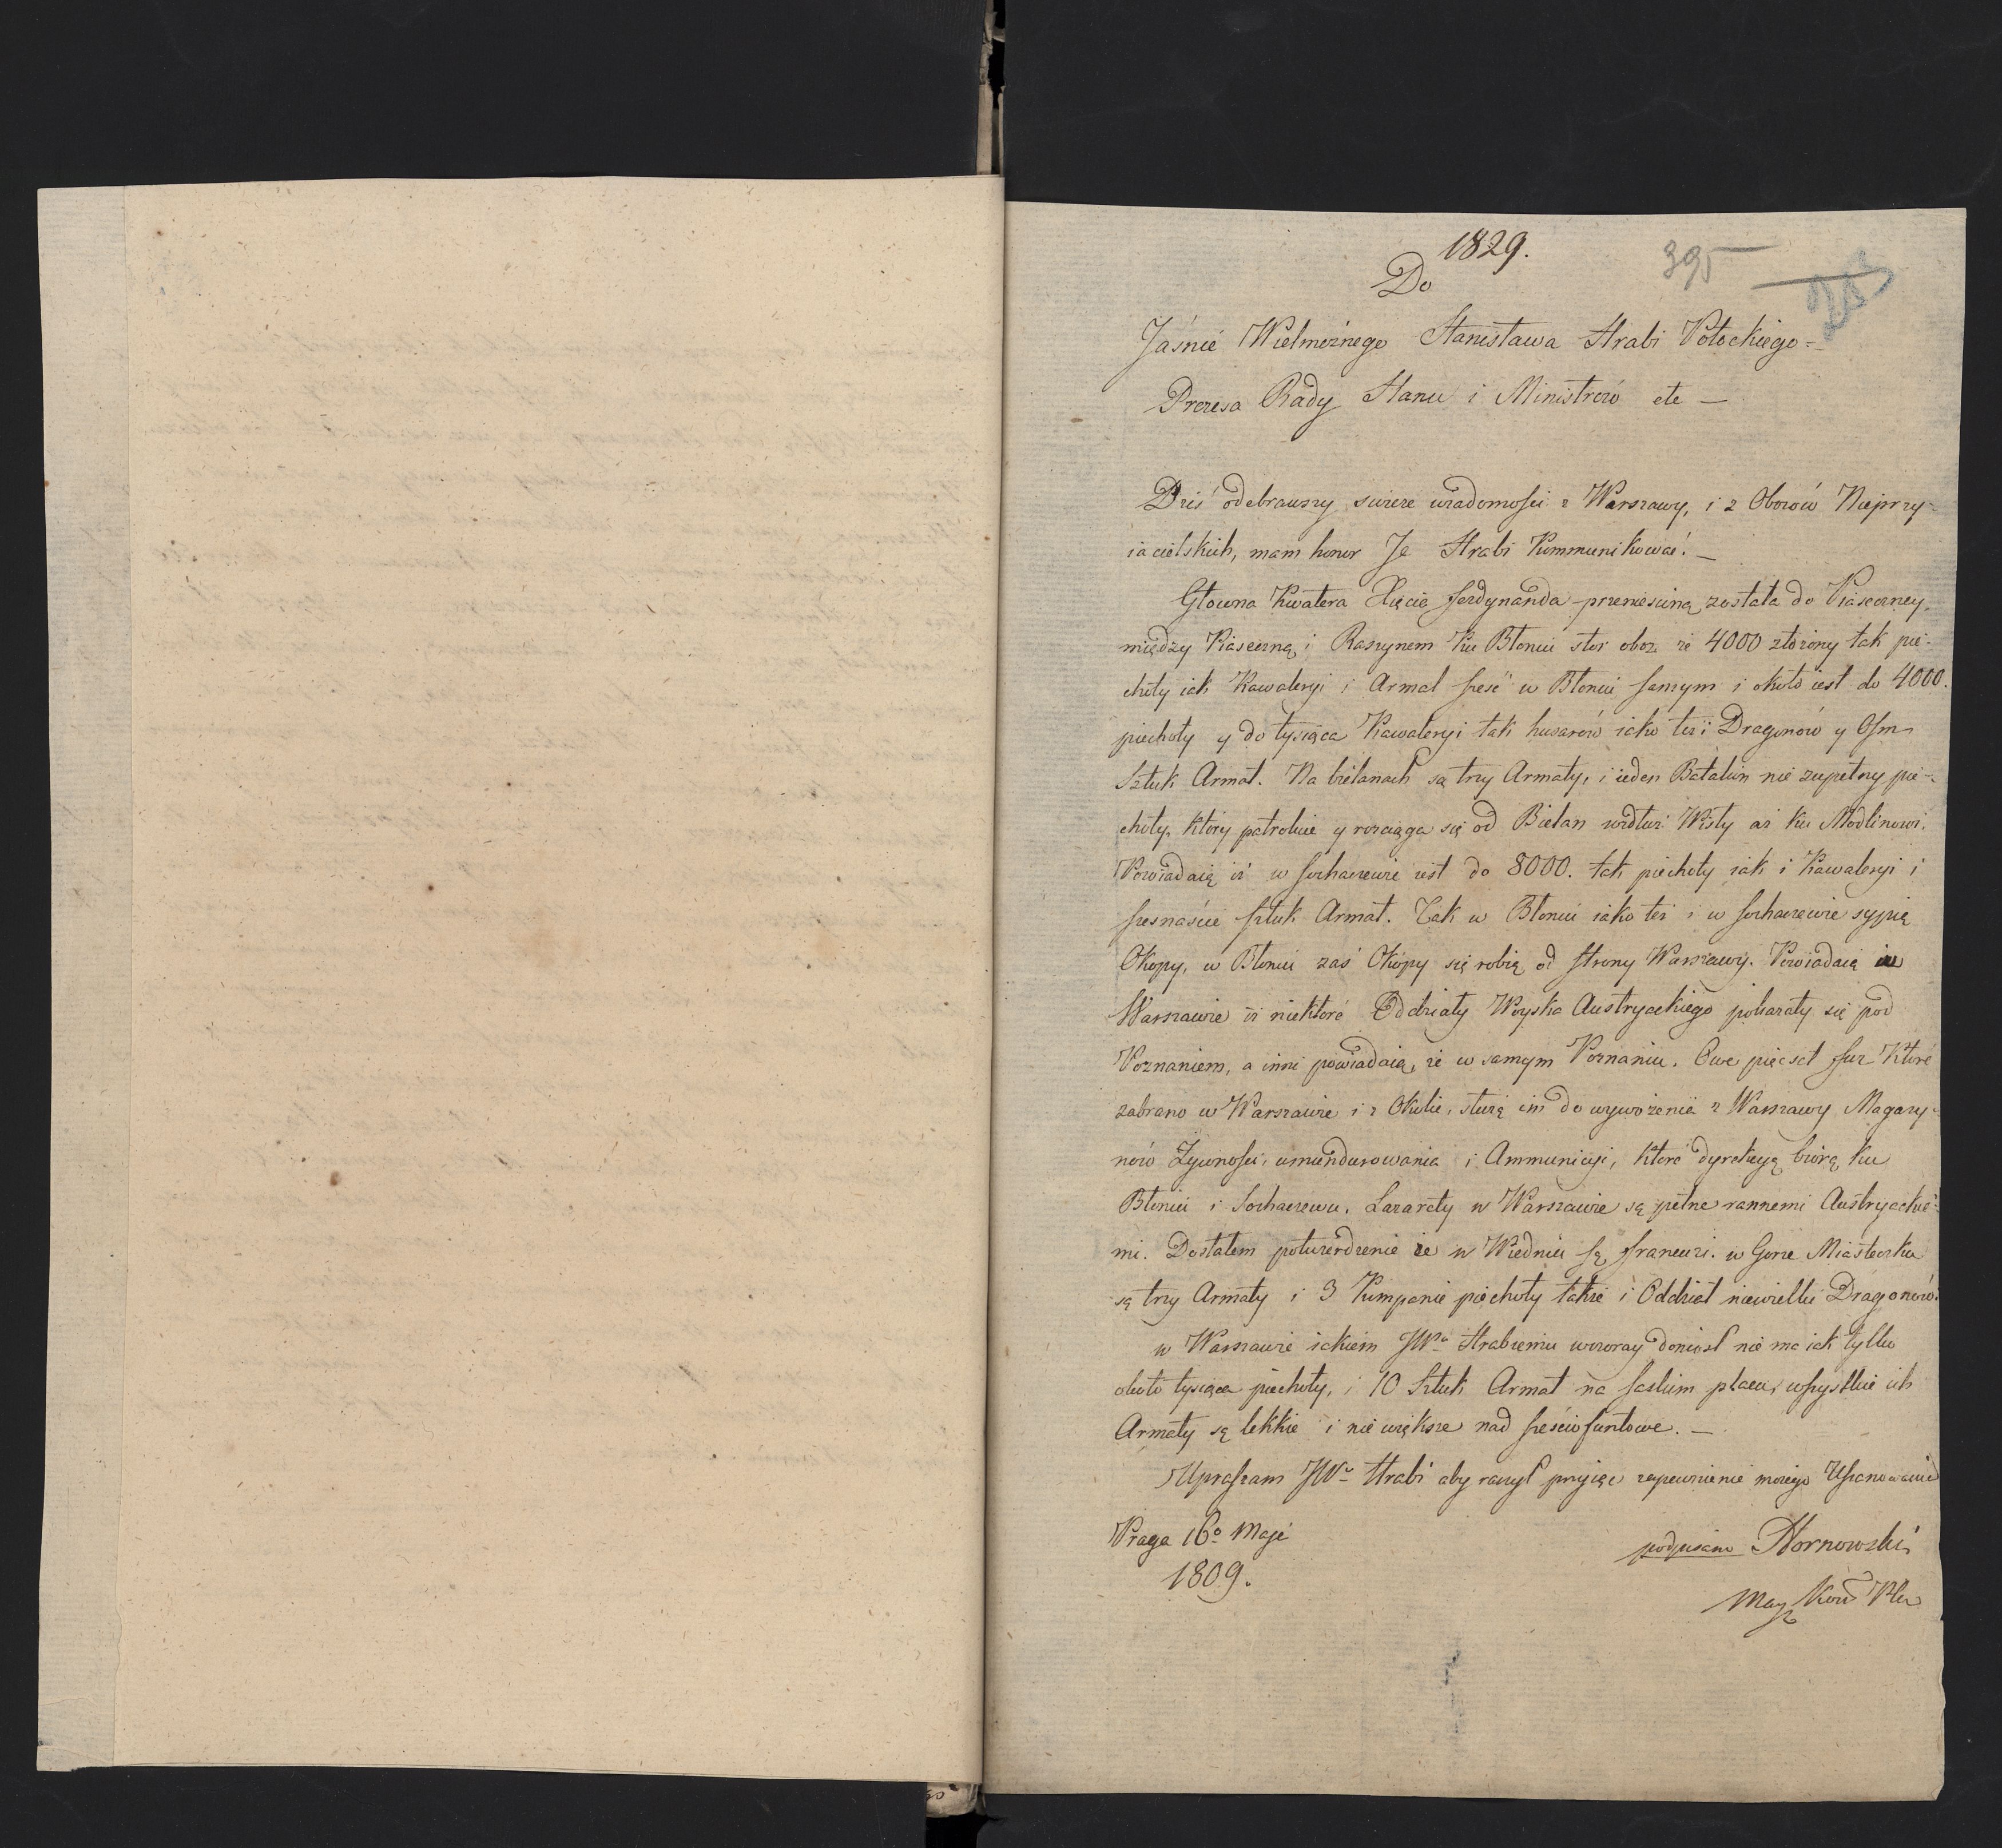 1829.
395
Do
Jaśnie Wielmożnego Stanisława Hrabi Potockiego =
Prezesa Rady Stanu i Ministrow etc —
Dziś odebrawszy swieze wiadomości z Warszawy, i z Obozów Nieprzy-
iacielskich, mam honor Je Hrabi Kommunikować. —
Głowna Kwatera Xięcia Ferdynanda przeniesiną została do Piaseczney,
między Piaseczną i Raszynem ku Błoniu stoi oboz ze 4000 złożony tak pie-
choty iak Kawaleryi i Armat szesć w Błoniu samym i około iest do 4000.
piechoty y do tysiąca Kawaleryi tak huzarów iako też i Dragonow y Osm
Sztuk Armat. Na bielanach są trzy Armaty, i ieden Batalion nie zupełny pie-
choty, ktory patroluie y rozciąga się od Bielan wzdłuż Wisły aż ku Modlinowi.
Powiadaią iż w Sochaczewie iest do 8000. tak piechoty iak i Kawaleryi i
szesnaście sztuk Armat. Tak w Błoniu iako też i w Sochaczewie sypią
Okopy, w Błoniu zaś Okopy się robią od strony Warszawy. Powiadaią w
Warszawie iż niektore Oddziały Woyska Austryackiego pokazały się pod
Poznaniem, a inni powiadaią, że w samym Poznaniu. Owe pięcset fur Które
zabrano w Warszawie i z Okolic, służą im do wywożenia z Warszawy Magazy-
now Żywności, umundurowania i Ammunicyi, które dyrekcyą biorą ku
Błoniu i Sochaczewu. Lazarety w Warszawie są pełne rannemi Austryackie-
mi. Dostałem potwierdzenie że w Wiedniu są francuzi. w Gorze Miasteczku
są trzy Armaty i 3 Kompanie piechoty także i Oddział niewielki Dragonów.
w Warszawie iakiem JWu Hrabiemu wczoray doniosł nie ma iak tylko
około tysiąca piechoty, i 10 Sztuk Armat na saskim placu, wszystkie ich
Armaty są lekkie i nie większe nad sześciofuntowe. —
Upraszam JWo Hrabi aby raczył przyiąć zapewnienie moiego Uszanowania
Praga 16o Maja
1809.
podpisano Hornowski